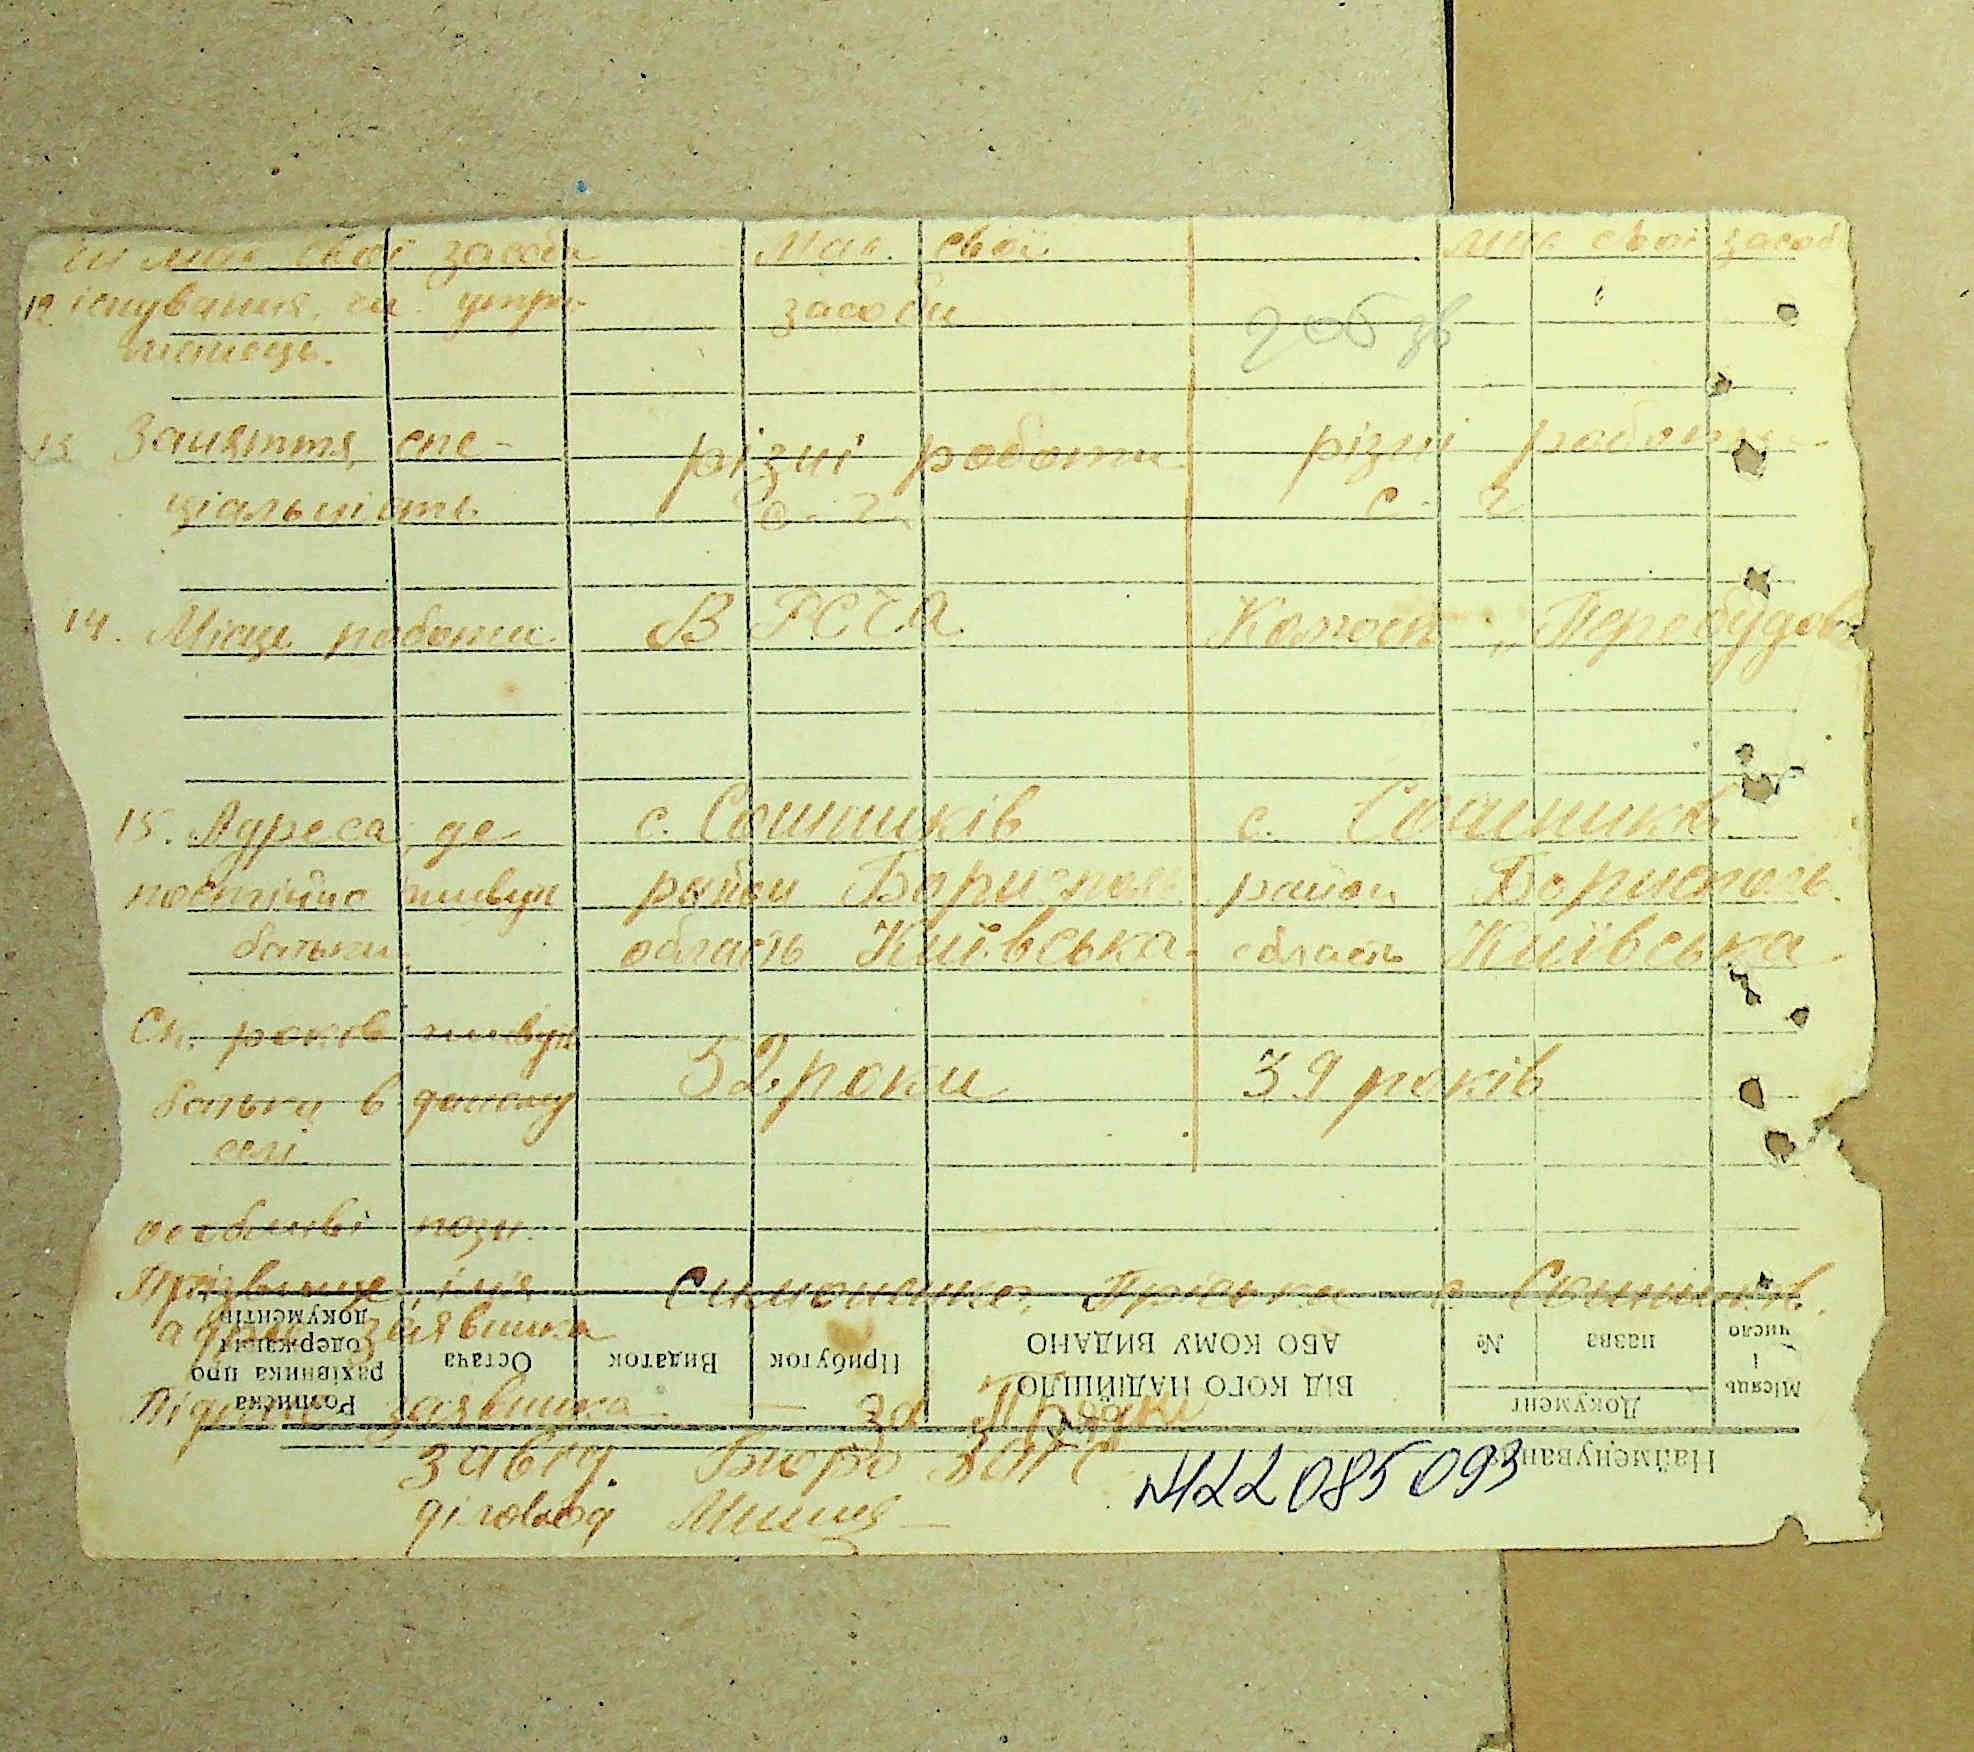 чи має свої засоби Має свої має свої засоб
12. існування, чи утри- засоби
манець.
13 Заняття, спе- різні роботи різні роботи
ціальність с. г. с. г.
14. Місце роботи В РСЧА Колгосп „Перебудова
15. Адреса де- с. Сошників с. Сошників
постійно живуть район Бориспіль район Бориспіль
батьки. область Київська. область Київська.
Ск. років живуть 32 роки 39 років
батьки в даному
селі
особливі позн.
Прізвище, ім'я Симоненко, Пріська с Сошників.
адрес заявника
Підпис заявника — за
завід. Бюро ЗАГС
діловод
№22085093
Найменування
Місяць і число
Документ
назва
№
ВІД КОГО НАДІЙШЛО
АБО КОМУ ВИДАНО
Прибуток
Видаток
Остача
Розписка
рахівника про
одержання
документів